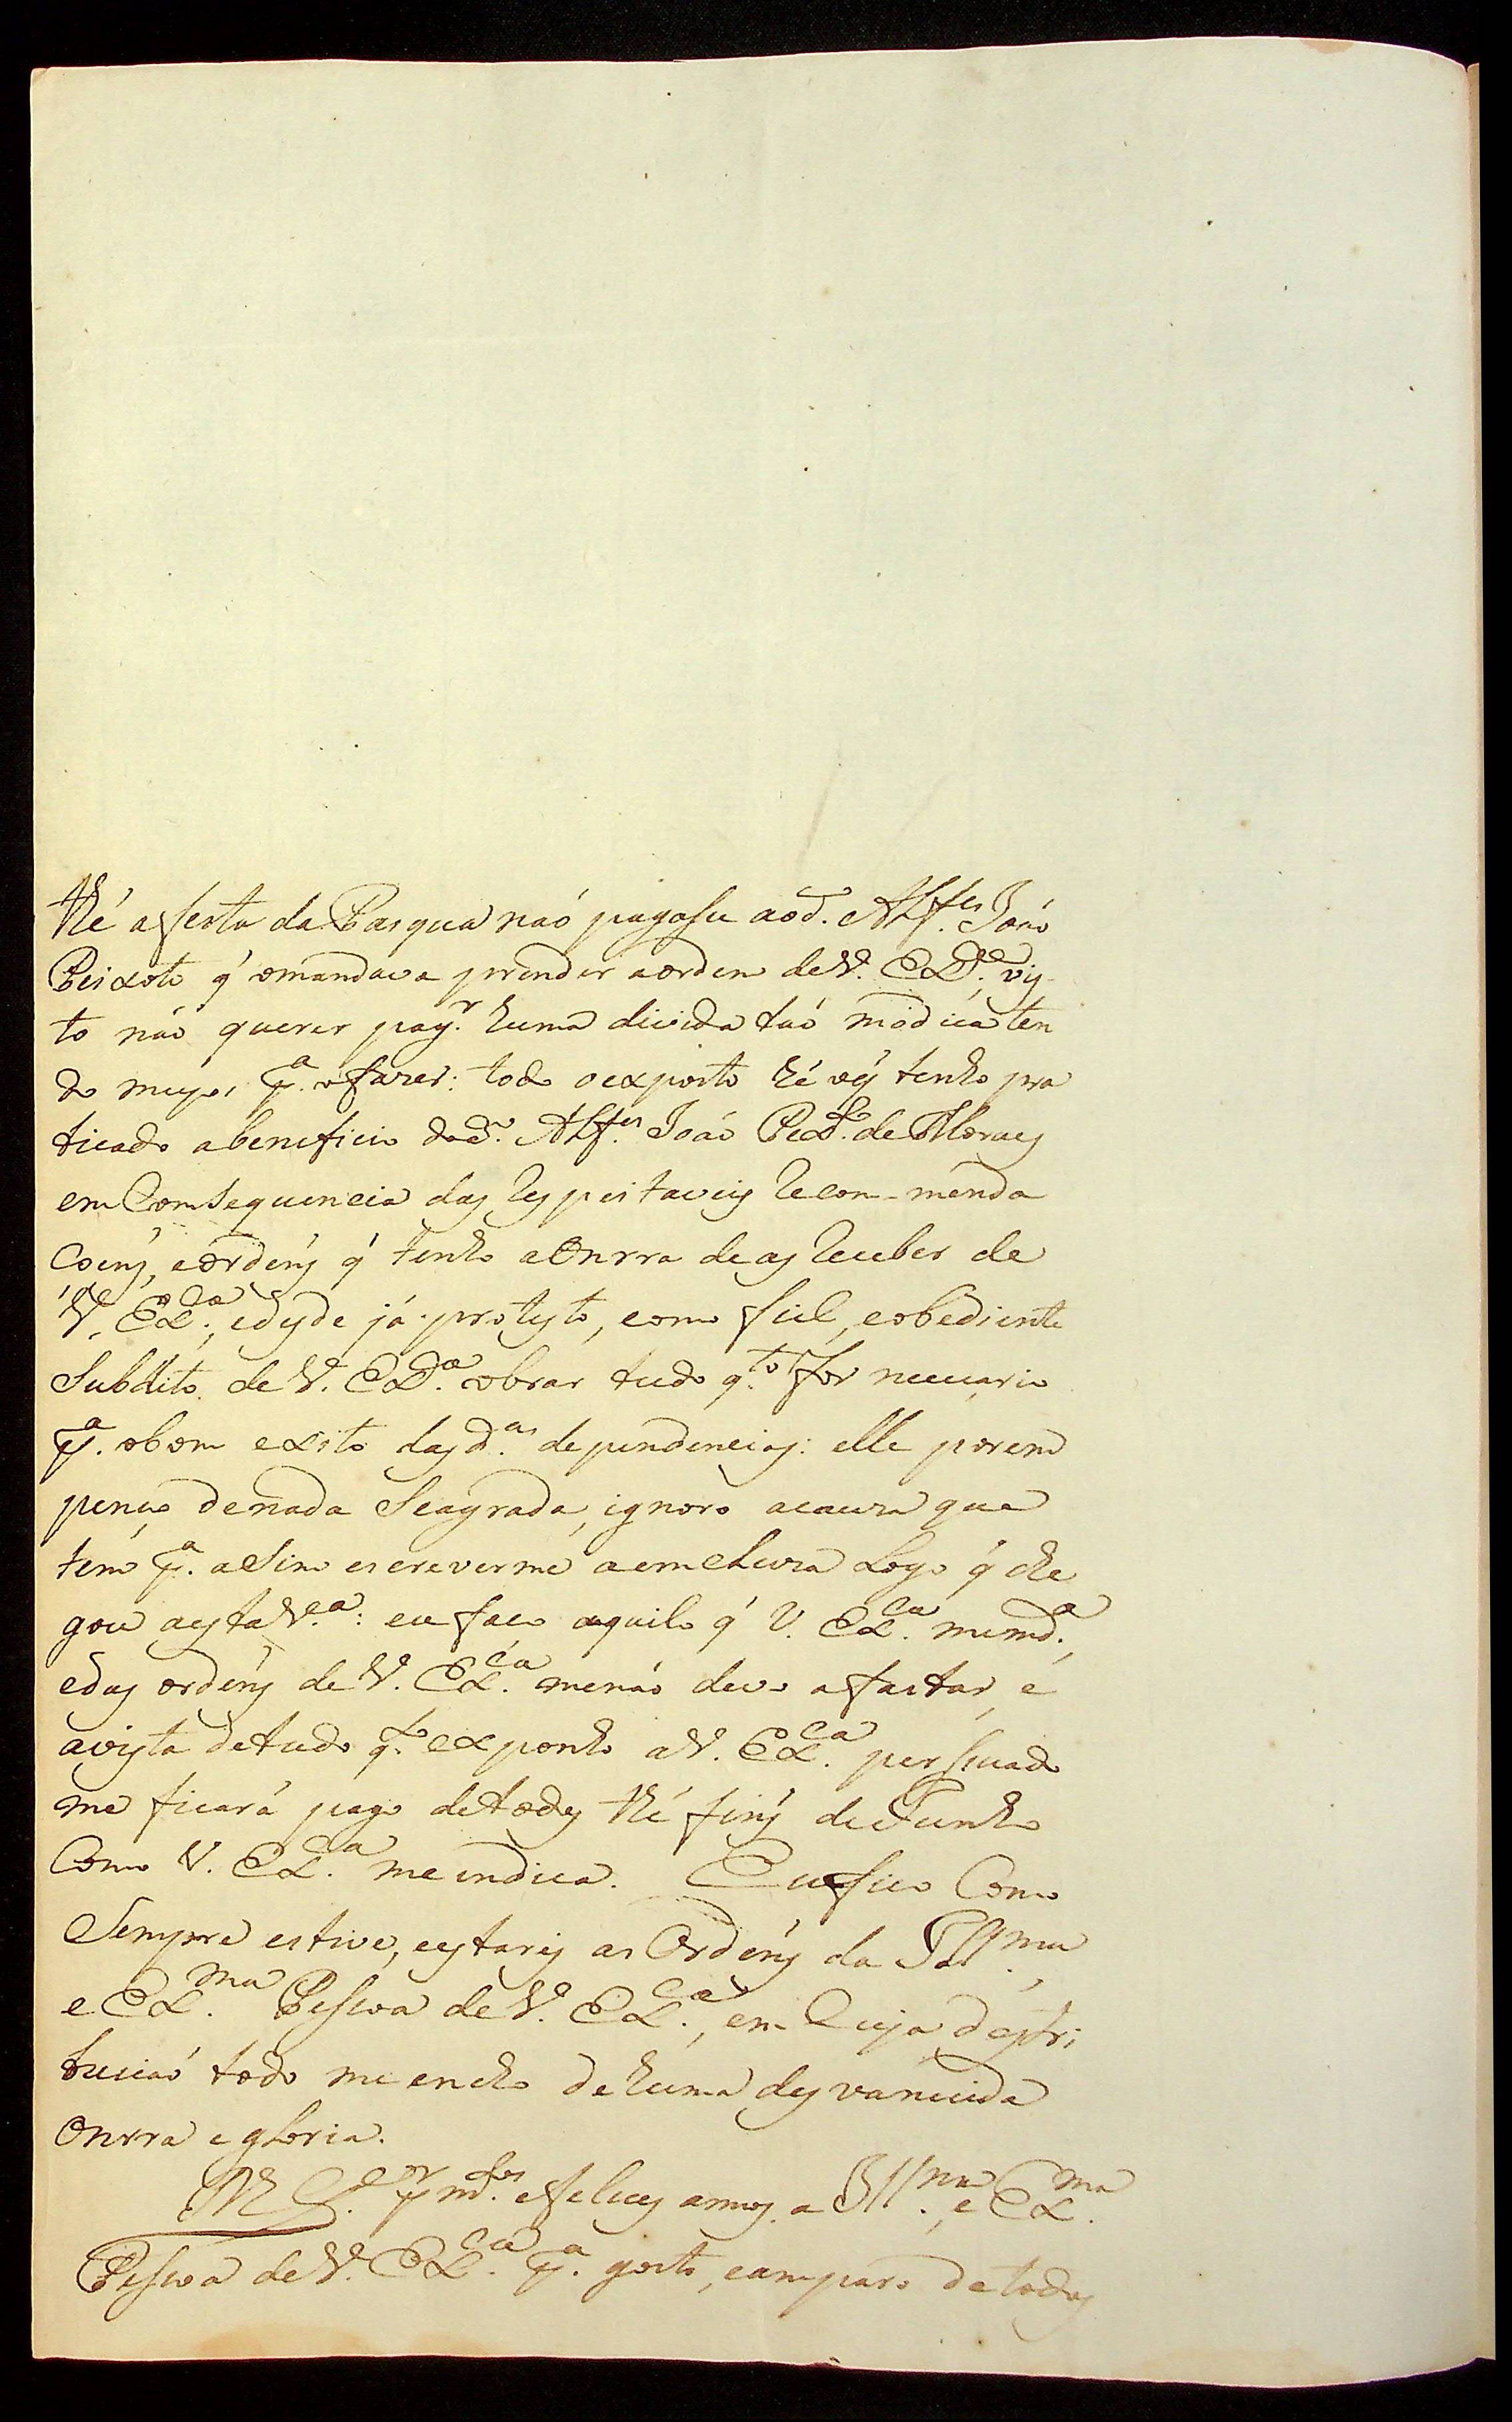 thé afesta da Pasqua naó pagasse aod.º Alf.es Joaó
Peixoto q' omandava prender aordem deV. Ex.ca, vis-
to náo querer pag.r huma divida taó módica ten
do meyos p.a ofazer: todo oexposto thé oje tenho pra
ticado abeneficio dod.º Alf.es Joaó Peix.to de Moraes
em Comsequencia das respeitaveis recom-menda
coens, eordens q' tenho aOnrra deas receber de
V. Ex.ca, edesde já protesto, como fiel, eobediente
Subdito de V. Ex.ca obrar tudo q.to for necesario
p.a obom exito das d.as dependencias: elle porem
penso denada Seagrada, ignoro acauza que
tem p.a asim escreverme aemchurra logo q' che
gou aesta V.a: eu faco aquilo q' V. Ex.ca memd.a,
edas ordens de V. Ex.ca menáo devo afastar, e
avista detudo q.to exponho aV. Ex.ca persuado
me ficará pago detodos thé fins deJunho
Como V. Ex.ca meindica. Eufico Como
Sempre estive, eestarei as Ordens da Ill.ma,
e Ex.ma Pessoa de V. Ex.ca, em Cuja destri
buicaó todo meencho dehuma desvanecida
Onrra egloria.
N S. G.e p.r m.tos efelices annos a Ill.ma, e Ex.ma
Pessoa deV. Ex.ca p.a gosto, eamparo detodos